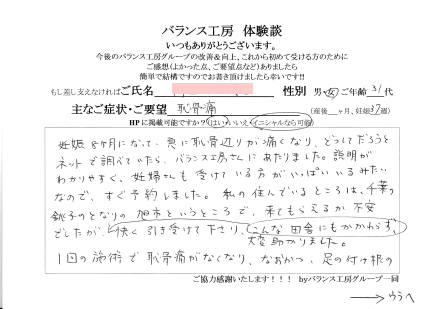 バランス工房 体験談
いつもありがとうございます。
今後のバランス工房グループの改善&向上、これから初めて受ける方のために
ご感想(よかった点、ご要望点など)ありましたら
簡単で結構ですのでお書き頂けましたら幸いです!!
もし差し支えなければご氏名 性別 男・女 ご年齢 31 代
主なご症状・ご要望 恥骨痛 (産後 ヶ月、妊娠37週)
HPに掲載可能ですか?(はい・いいえ・イニシャルなら可能)
妊娠8ヶ月になって、急に恥骨辺りが痛くなり、どうしてだろうと
ネットで調べていたら、バランス工房さんにあたりました。説明が
わかりやすく、妊婦さんも受けている方がいっぱいいるみたい
なので、すぐ予約しました。私の住んでいるところは、千葉の
銚子のとなりの旭市というところで、来てもらえるか不安
でしたが、快く引き受けて下さり、こんな田舎にもかかわらず、
大変助かりました。
1回の施術で恥骨痛がなくなり、なおかつ、足の付け根の
ご協力感謝いたします!!! byバランス工房グループ一同
→ウラへ